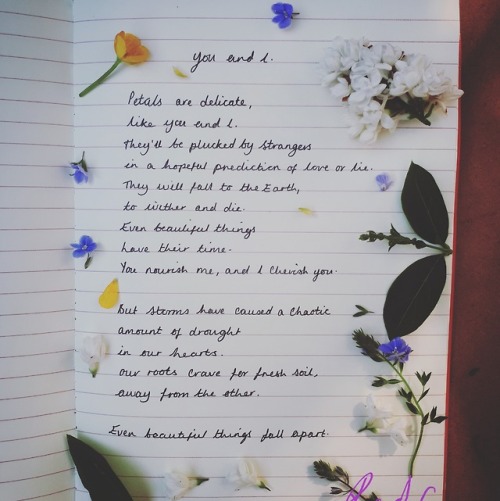 You and I.
Petals are delicate,
like you and I.
They'll be plucked by strangers
in a hopeful prediction of love or lie.
They will fall to the Earth,
to wither and die.
Even beautiful things
have their time.
You nourish me, and I cherish you.
But storms have caused a chaotic
amount of drought
in our hearts.
our roots crave for fresh soil,
away from the other.
Even beautiful things fall apart.